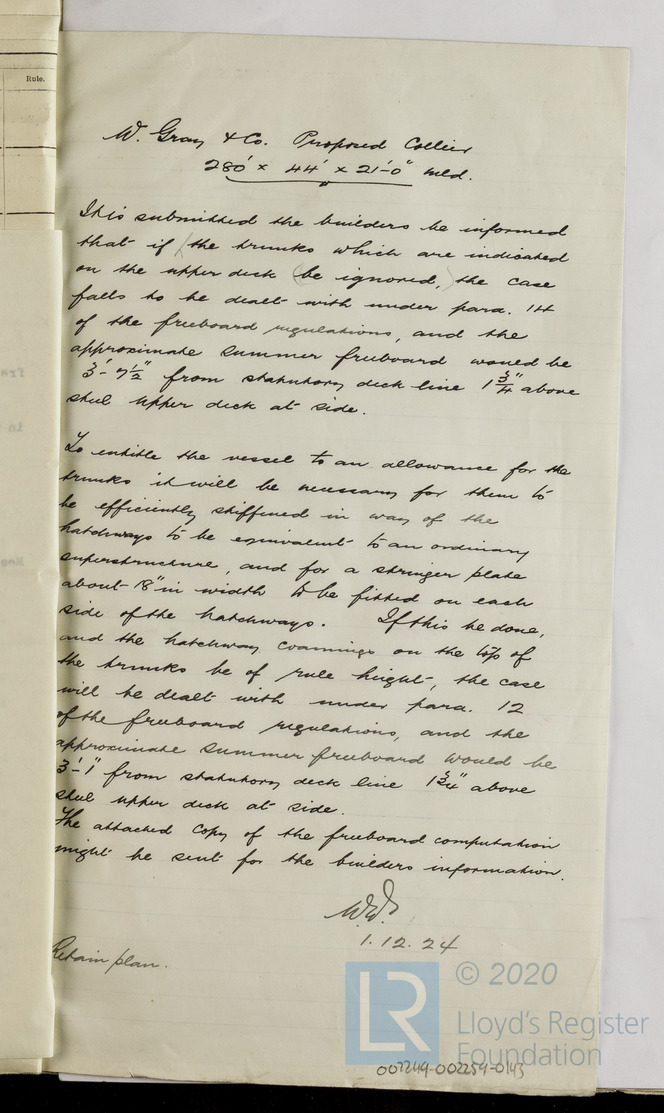 Rule.
W. Gray & Co. Proposed Collier
280' x 44' x 21'-0" mld.
It is submitted the builders be informed
that if (the trunks which are indicated
on the upper deck (be ignored,) the case
falls to be dealt with under para. 14
of the freeboard regulations, and the
approximate summer freeboard would be
3'-7½" from statutory deck line 1¾" above
steel upper deck at side.
To entitle the vessel to an allowance for the
trunks it will be necessary for them to
be efficiently stiffened in way of the
hatchways to be equivalent to an ordinary
superstructure, and for a stringer plate
about 18" in width to be fitted on each
side of the hatchways. If this be done,
and the hatchway coamings on the top of
the trunks be of rule height, the case
will be dealt with under para. 12
of the freeboard regulations, and the
approximate summer freeboard would be
3'-1" from statutory deck line 1¾" above
steel upper deck at side.
The attached copy of the freeboard computation
might be sent for the builders information.
1.12.24
Retain plan.
© 2020
LR
Lloyd's Register
Foundation
002249-002259-0143